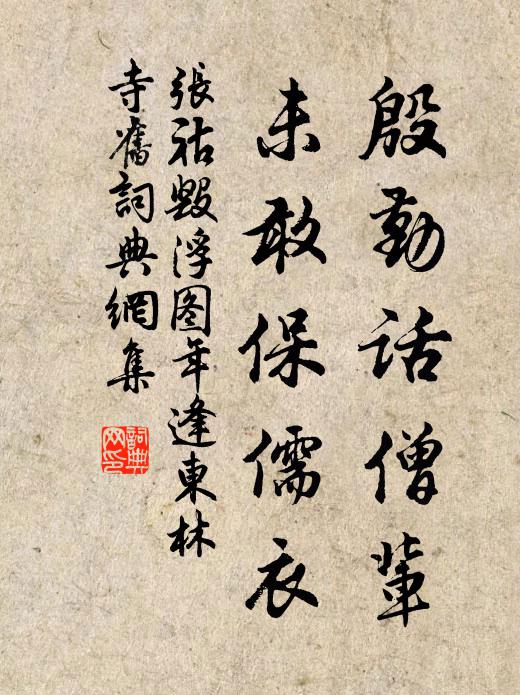 殷勤话僧輩
未敢保儒衣
張祜毀浮图年逢東林
寺舊詞典網集
詞典網印